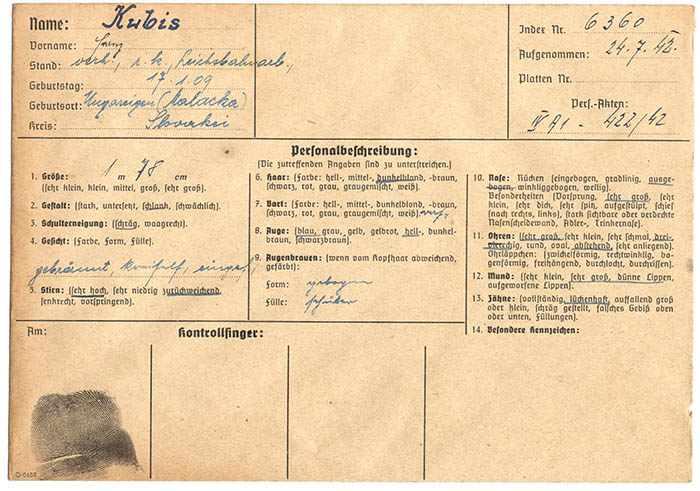 Name: Kubis
Vorname: Franz
Stand: verh., r. k., Reichsbahnarb.,
Geburtstag: 17.1.09
Geburtsort: Ungareigen (Malacka)
Kreis: Slovakei
Index Nr. 6360
Aufgenommen: 24.7.42.
Platten Nr.
Pers.-Akten:
IV A1 - 422/42
Personalbeschreibung:
(Die zutreffenden Angaben sind zu unterstreichen.)
1. Größe: 1 m 78 cm
(sehr klein, klein, mittel, groß, sehr groß).
2. Gestalt: (stark, untersetzt, schlank, schwächlich).
3. Schulterneigung: (schräg, waagrecht).
4. Gesicht: (Farbe, Form, Fülle).
gebräunt,
5. Stirn: (sehr hoch, sehr niedrig zurückweichend,
senkrecht, vorspringend).
6. Haar: (Farbe: hell-, mittel-, dunkelblond, -braun,
schwarz, rot, grau, graugemischt, weiß).
7. Bart: (Farbe: hell-, mittel-, dunkelblond, -braun,
schwarz, rot, grau, graugemischt, weiß)
8. Auge: (blau, grau, gelb, gelbrot, hell-, dunkel-
braun, schwarzbraun).
9. Augenbrauen: (wenn vom Kopfhaar abweichend,
gefärbt):
Form: gebogen
Fülle:
10. Nase: Rücken (eingebogen, gradlinig, ausge-
bogen, winkliggebogen, wellig).
Besonderheiten (Vorsprung, sehr groß, sehr
klein, sehr dick, sehr spitz, aufgestülpt, schief
(nach rechts, links), stark sichtbare oder verdeckte
Nasenscheidewand, Adler-, Trinkernase).
11. Ohren: (sehr groß, sehr klein, sehr schmal, drei-
viereckig, rund, oval, abstehend, sehr anliegend).
Ohrläppchen: (zwickelförmig, rechtwinklig, bo-
genförmig, freihängend, durchlocht, durchrissen).
12. Mund: (sehr klein, sehr groß, dünne Lippen,
aufgeworfene Lippen).
13. Zähne: (vollständig, lückenhaft, auffallend groß
oder klein, schräg gestellt, falsches Gebiß oben
oder unten, Füllungen).
14. Besondere Kennzeichen:
Am:
Kontrollfinger: